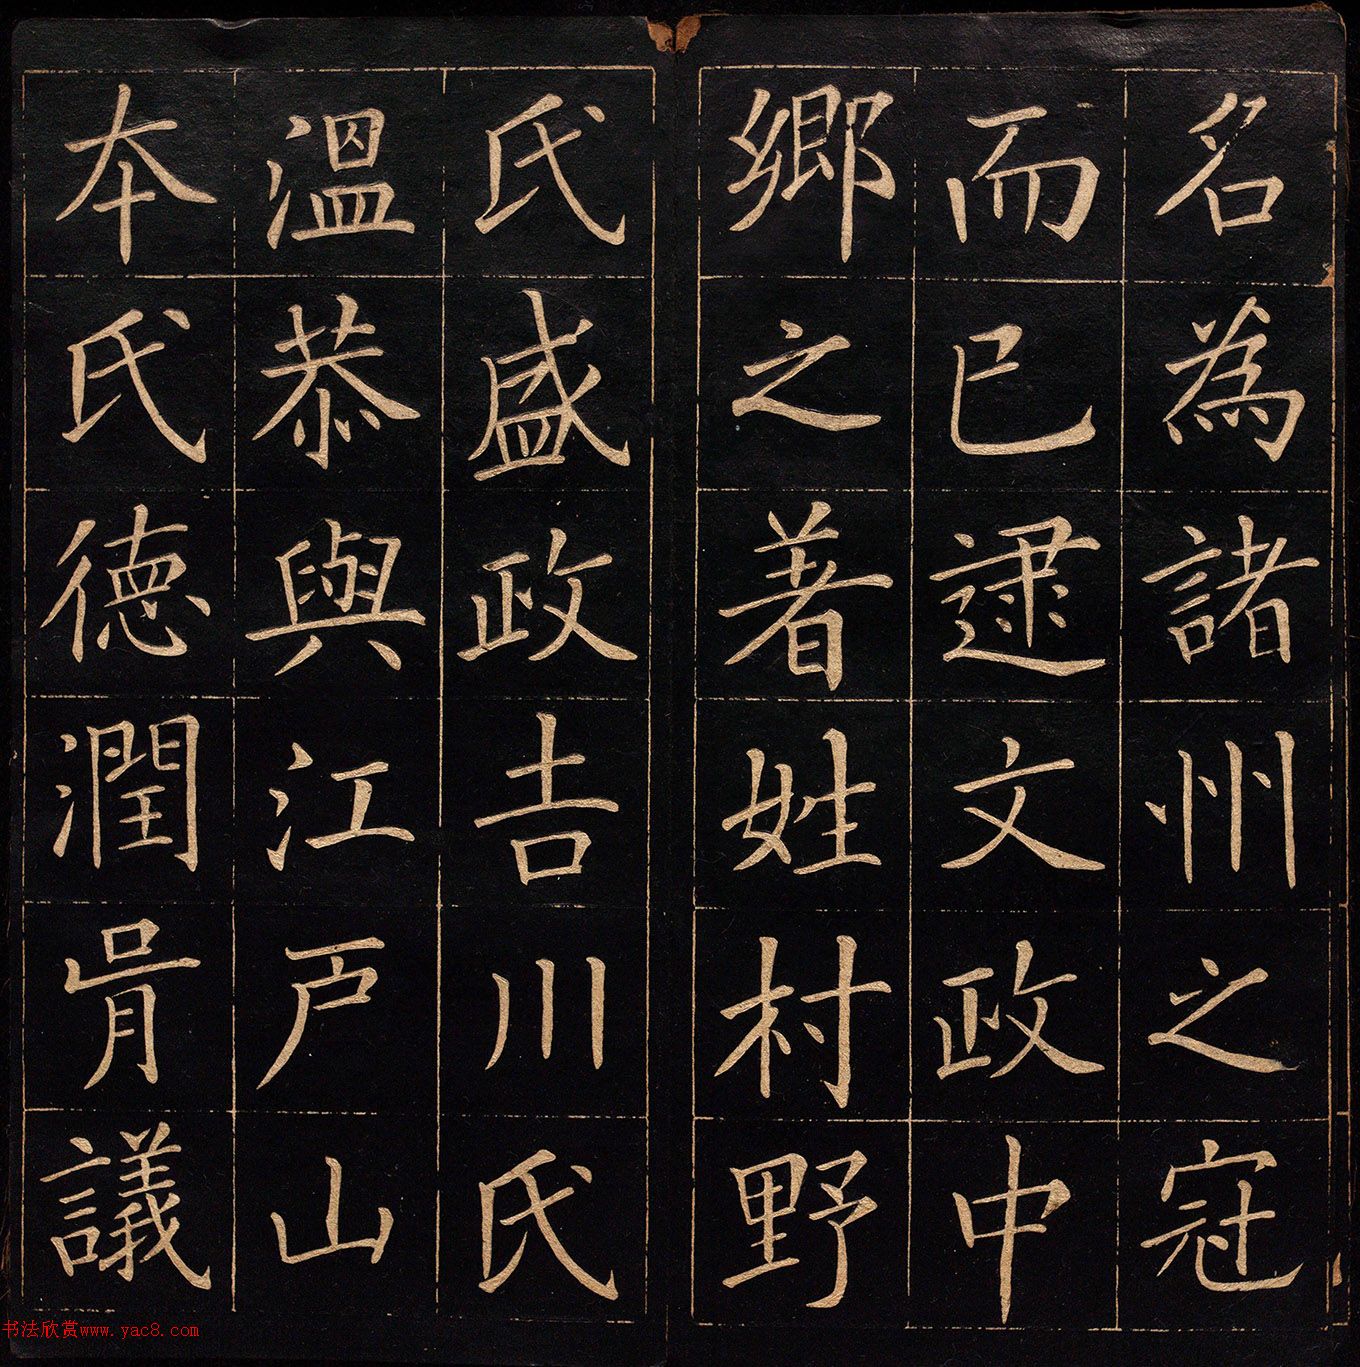 名為諸州之冠
而已逮文政中
鄉之著姓村野
氏盛政吉川氏
溫恭與江戶山
本氏德潤胥議
书法欣赏www.yac8.com